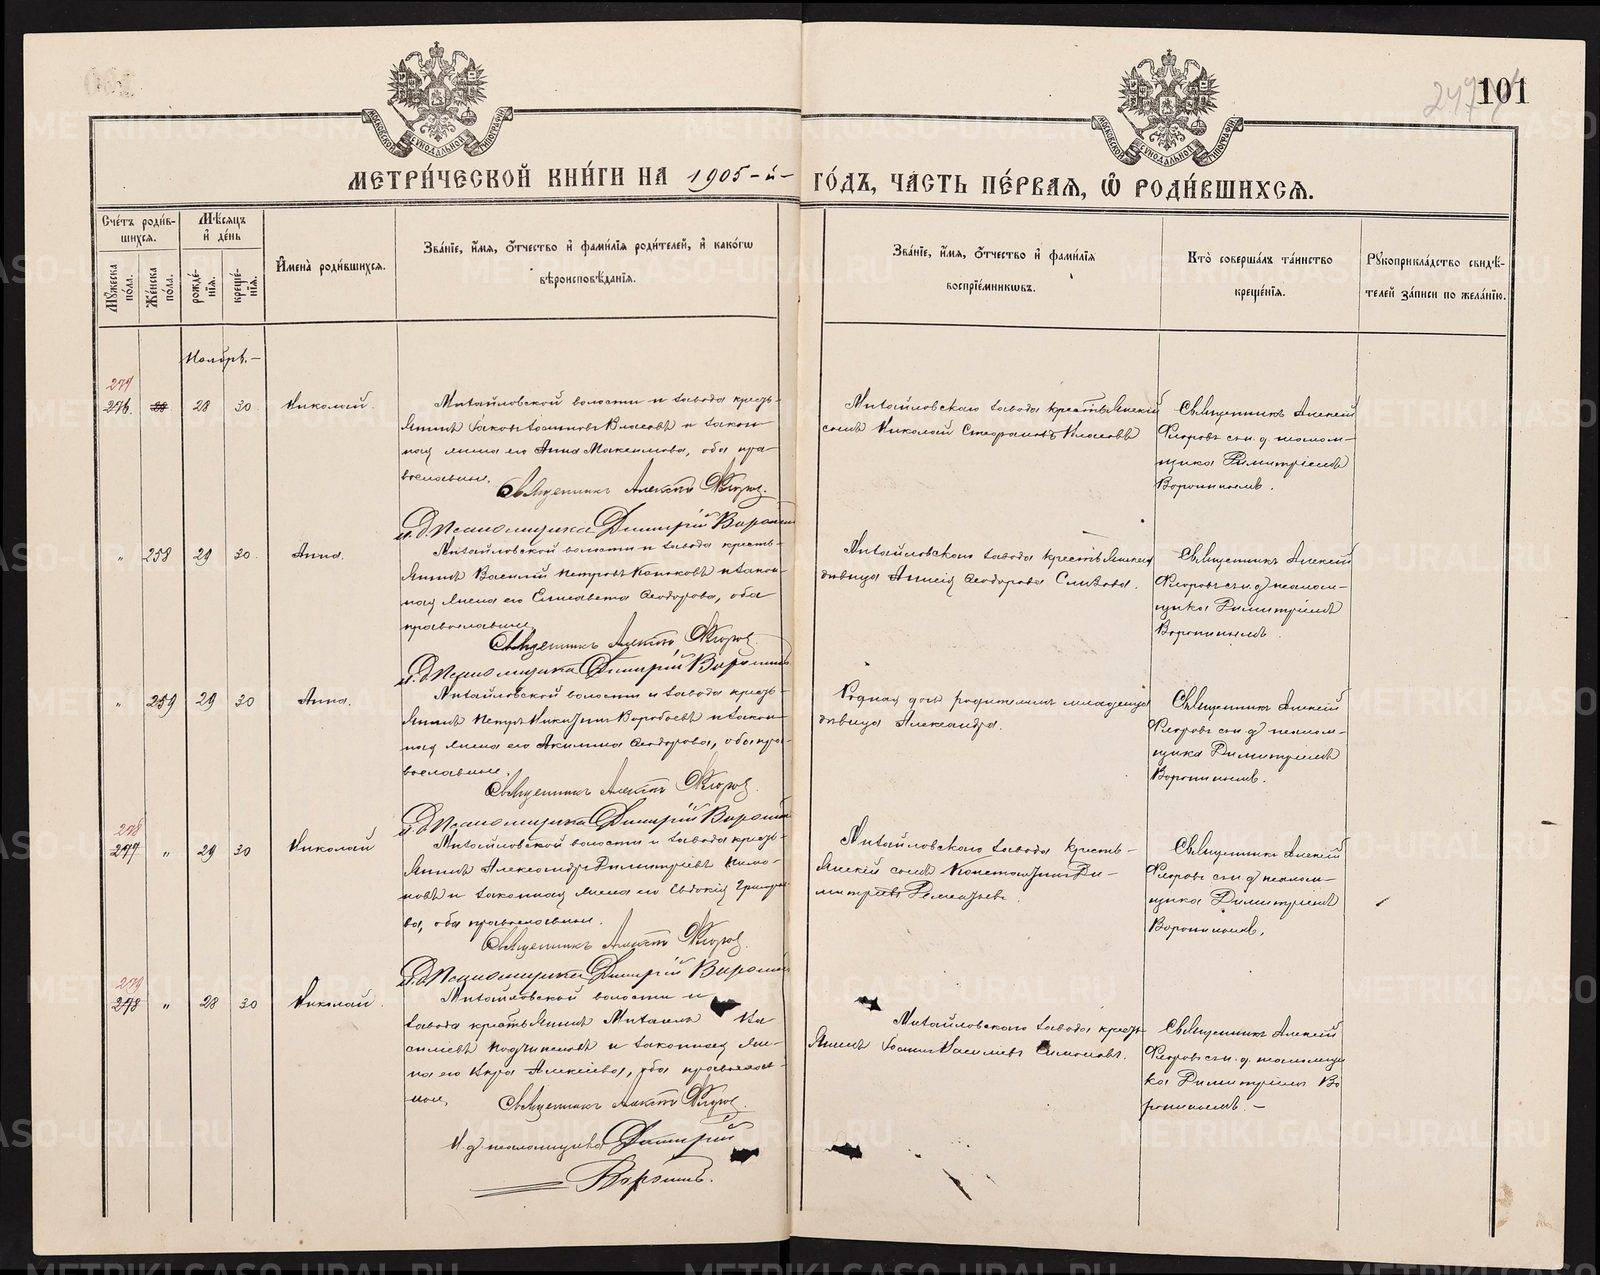 101
МЕТРИ́ЧЕСКОЙ КНИ́ГИ НА 1905-й- ГО́ДЪ, ЧА́СТЬ ПЕ́РВАѦ, Ѡ҆ РОДИ́ВШИХСѦ.
Сче́тъ роди́в-
шихсѧ.
Мꙋ́жеска по́ла.
Же́нска по́ла.
Мѣ́сѧцъ
и҆ де́нь
рожде́-
нїѧ.
креще́-
нїѧ.
И҆мена̀ роди́вшихсѧ.
Зва́нїе, и҆́мѧ, ѻ҆́тчество и҆ фамѝлїѧ роди́телей, и҆ како́гѡ
вѣроисповѣ́данїѧ.
Зва́нїе, и҆́мѧ, ѻ҆́тчество и҆ фамѝлїѧ
воспрїе́мникѡвъ.
Кто̀ соверша́лъ та́инство
креще́нїѧ.
Рꙋкоприкла́дство свидѣ́-
телей за́писи по жела́нїю.
Ноябрь.-
277
276
28
30
Николай.
Михайловской волости и завода кресть-
янинъ Іаковъ Іоанновъ Власовъ и закон
ная жена его Анна Максимова, оба пра-
вославные.
Священникъ Алексѣй Флоровъ.
и.д. Псаломщика Димитрій Воронинъ
Михайловскаго завода крестьянскій
сынъ Николай Стефановъ Власовъ
Священникъ Алексій
Флоровъ съ и.д. псалом-
щика Димитріемъ
Воронинымъ.
"
258
29
30.
Анна.
Михайловской волости и завода кресть-
янинъ Василій Петровъ и закон-
ная жена его Елисавета Ѳеодорова, оба
православные.
Священникъ Алексѣй Флоровъ.
и.д. Псаломщика Димитрій Воронинъ
Михайловскаго завода крестьянская
дѣвица Ѳеодорова
Священникъ Алексій
Флоровъ съ и.д. псалом-
щика Димитріемъ
Воронинымъ.
"
259
29
30
Анна.
Михайловской волости и завода кресть-
янинъ Петръ Никитинъ Воробьевъ и закон-
ная жена его Акилина Ѳеодорова, оба пра-
вославные.
Священникъ Алексѣй Флоровъ.
и.д. Псаломщика Димитрій Воронинъ
Родная дочь родителямъ младенца
дѣвица Александра.
Священникъ Алексій
Флоровъ съ и.д. псалом-
щика Димитріемъ
Воронинымъ.
278
277
"
29
30
Николай
Михайловской волости и завода кресть-
янинъ Александръ Димитріевъ
и законная жена его Евдокія Григорье-
ва, оба православные.
Священникъ Алексѣй Флоровъ.
и.д. Псаломщика Димитрій Воронинъ
Михайловскаго завода кресть-
янскій сынъ Константинъ Ди-
митріевъ
Священникъ Алексій
Флоровъ съ и.д. псалом-
щика Димитріемъ
Воронинымъ.
279
278
"
28
30
Николай.
Михайловской волости и
завода крестьянинъ Михаилъ Ва
сильевъ и законная же-
на его Алексіева, оба православ-
ные.
Священникъ Алексѣй Флоровъ.
И.д. псаломщика Димитрій
Воронинъ.
Михайловскаго завода кресть-
янинъ Іоаннъ Василіевъ Симоновъ.
Священникъ Алексій
Флоровъ съ и.д. псаломщи
ка Димитріемъ Во
ронинымъ.-